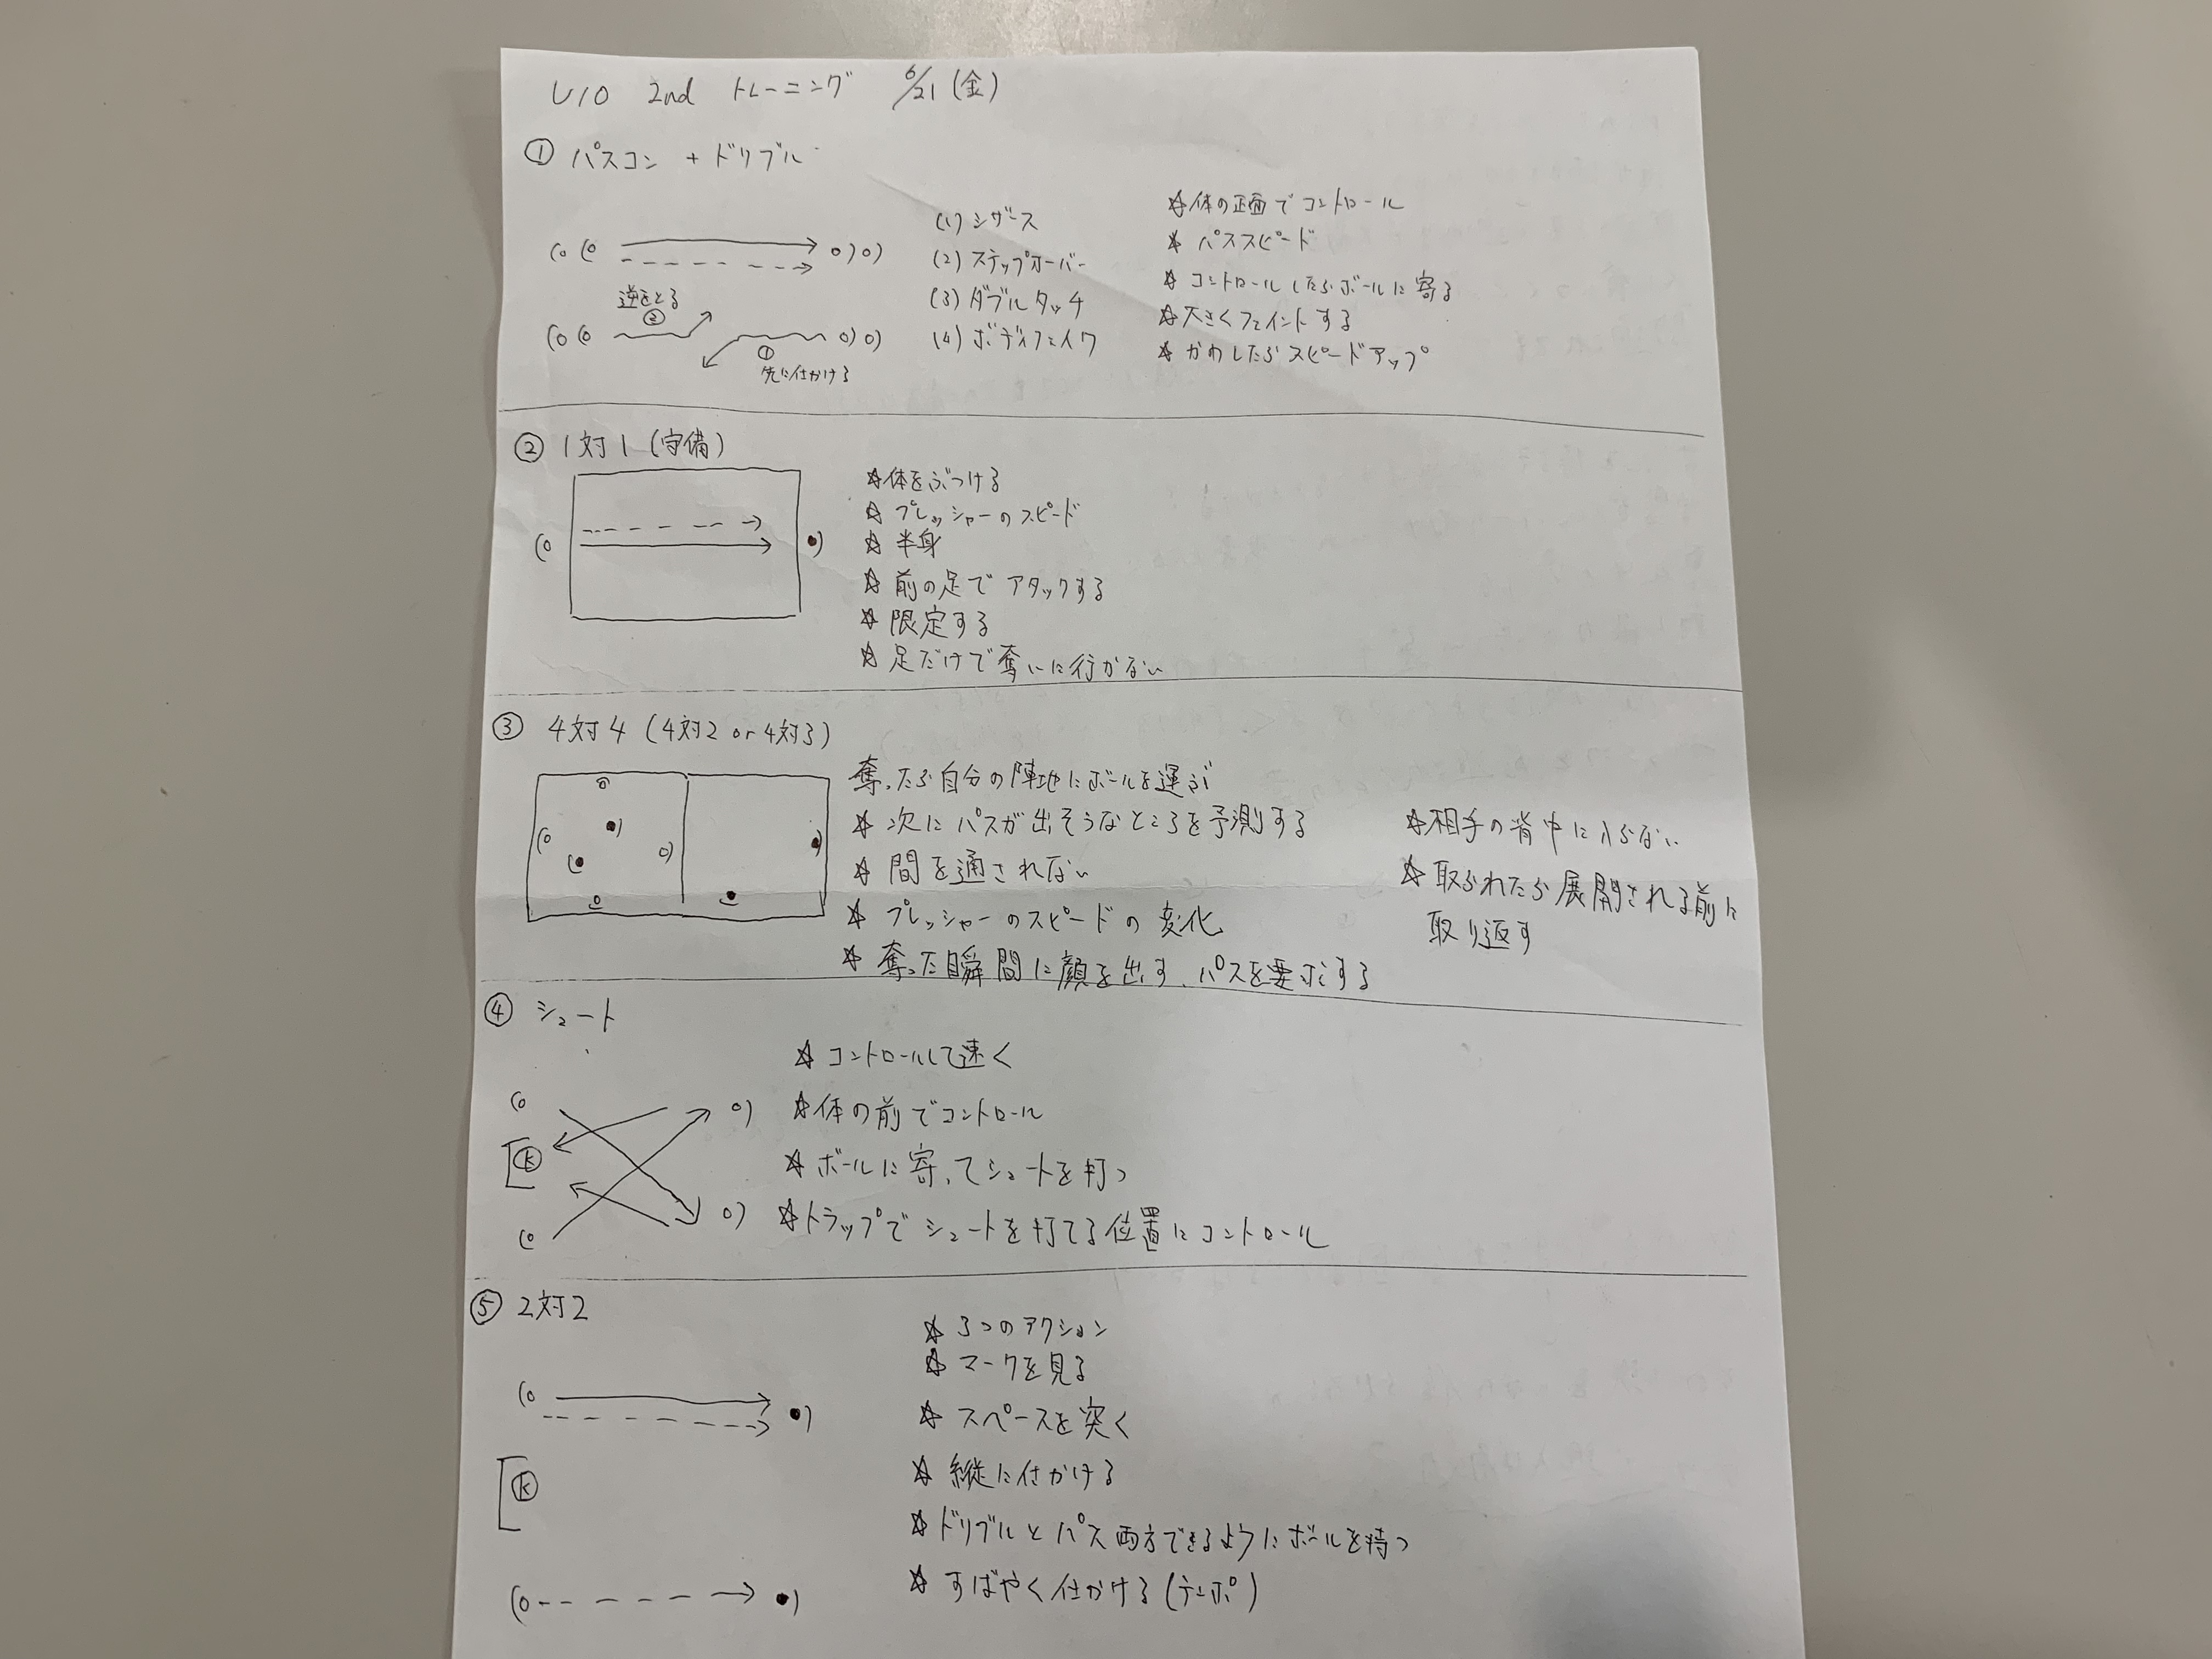 U10 2nd トレーニング 6/21(金)
① パスコン + ドリブル
(1) シザース
(2) ステップオーバー
(3) ダブルタッチ
(4) ボディフェイク
☆体の正面でコントロール
☆ パススピード
☆ コントロールしたらボールに寄る
☆大きくフェイントする
☆かわしたらスピードアップ
逆をとる
②
①
先に仕かける
② 1対1(守備)
☆体をぶつける
☆ プレッシャーのスピード
☆ 半身
☆ 前の足でアタックする
☆ 限定する
☆ 足だけで奪いに行かない
③ 4対4(4対2 or 4対3)
奪ったら自分の陣地にボールを運ぶ
☆ 次にパスが出そうなところを予測する
☆ 間を通されない
☆ プレッシャーのスピードの変化
☆ 奪った瞬間に顔を出す、パスを要求する
☆相手の背中に入らない
☆ 取られたら展開される前に
取り返す
④ シュート
☆ コントロールして速く
☆体の前でコントロール
☆ ボールに寄ってシュートを打つ
☆トラップでシュートを打てる位置にコントロール
K
⑤ 2対2
☆ 3つのアクション
☆ マークを見る
☆ スペースを突く
☆ 縦に仕かける
☆ドリブルとパス両方できるようにボールを持つ
☆ すばやく仕かける(テンポ)
K